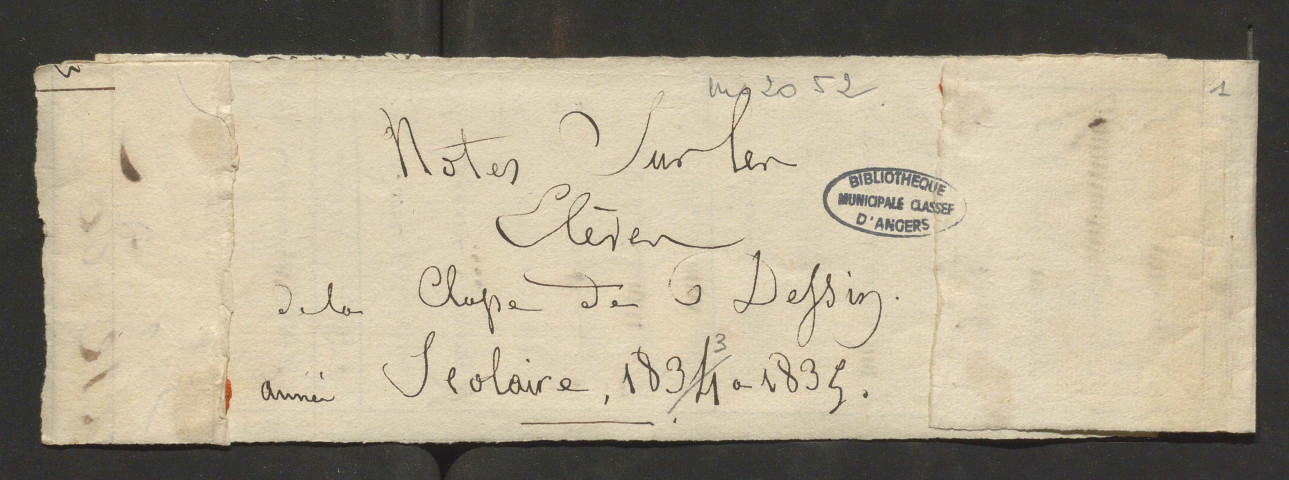 ms 2052
1
Notes Sur les
Elèves
BIBLIOTHEQUE
MUNICIPALE CLASSEE
D'ANGERS
de la Classe de Dessin.
année Scolaire, 1834 3 a 1835.